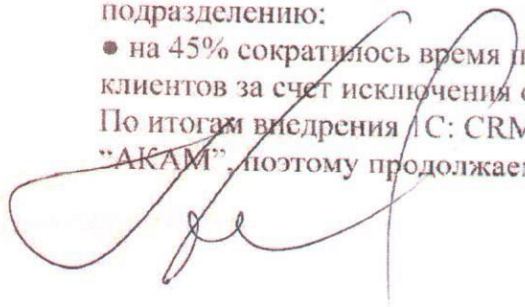 подразделению:
● на 45% сократилось время п
клиентов за счет исключения
По итогам внедрения 1С: CRM
"АКАМ", поэтому продолжаем